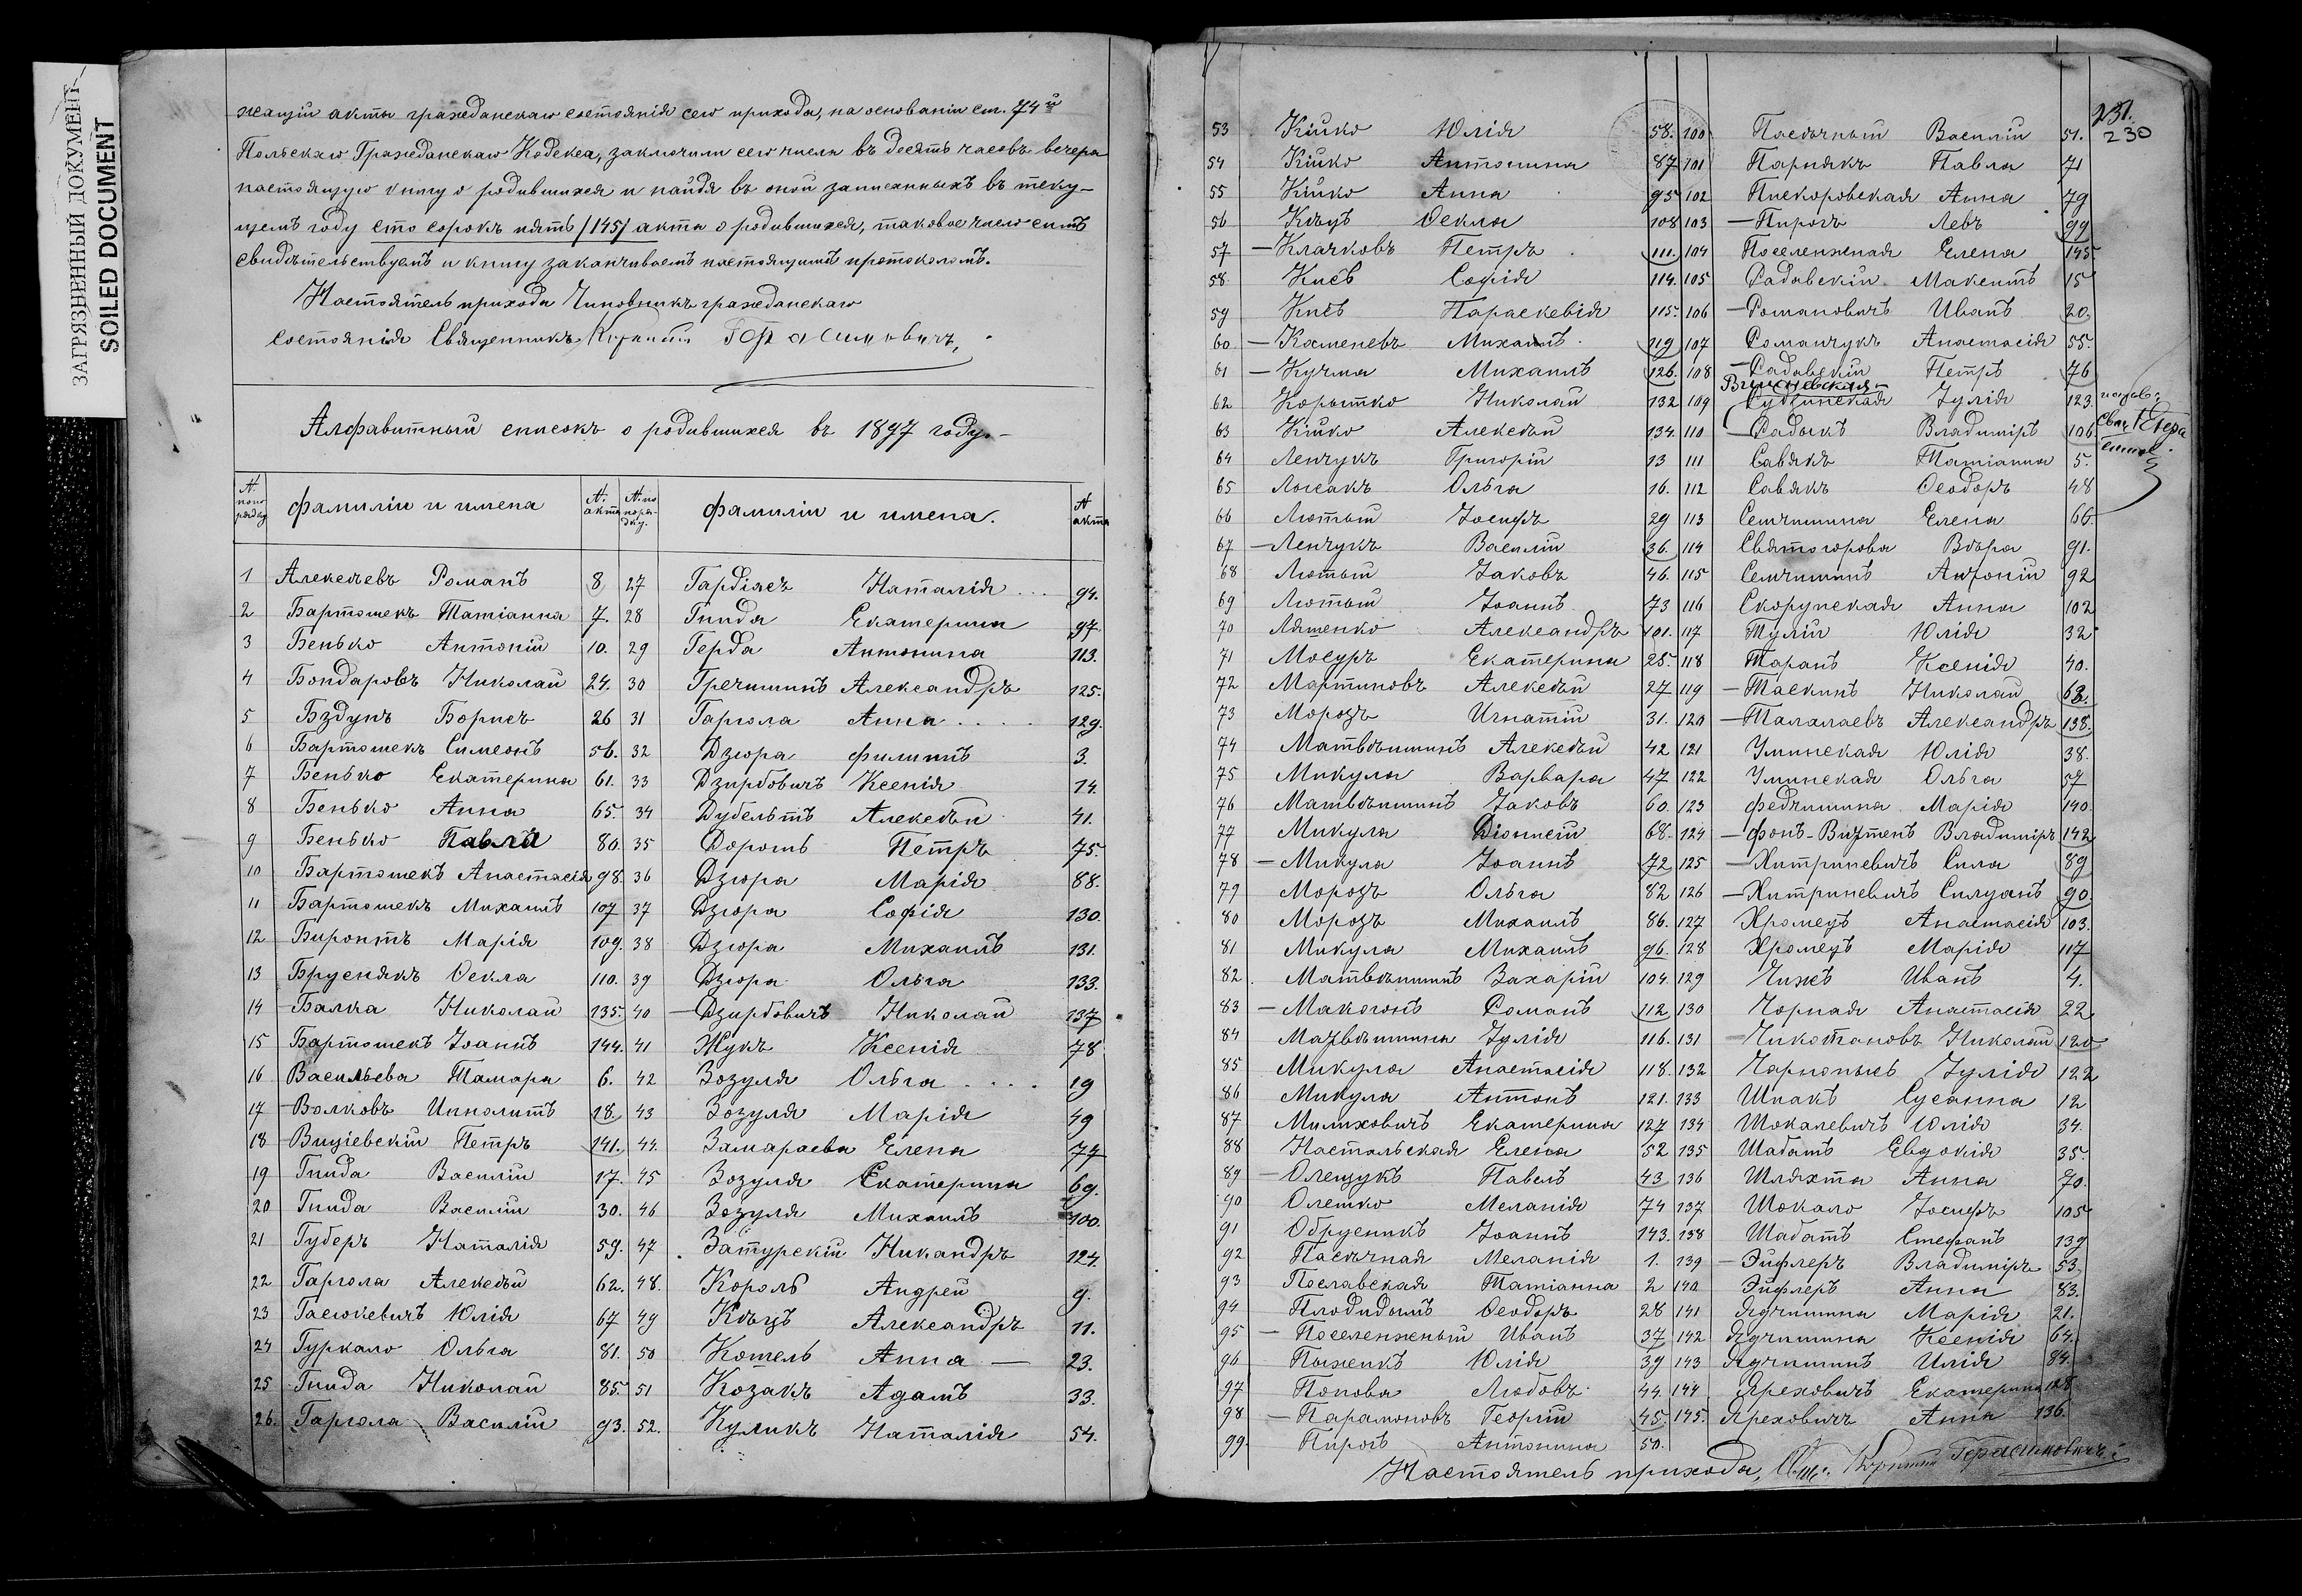 ЗАГРЯЗНЕННЫЙ ДОКУМЕНТ
SOILED DOCUMENT
жащій акты гражданскаго состоянія сего прихода, на основаніи ст. 74й
Польскаго Гражданскаго Кодекса, заключили сего числа въ десять часовъ вечера
настоящую книгу о родившихся и найдя въ оной записанныхъ въ теку-
щемъ году сто сорокъ пять /145/ акта о родившихся, таковое число симъ
свидѣтельствуемъ и книгу заканчиваемъ настоящимъ протоколомъ.
Настоятель прихода Чиновникъ гражданскаго
состоянія Священникъ Герасимовичъ
Алфавитный списокъ о родившихся въ 1897 году.-
№ по порядку Фамиліи и имена № акта № по порядку. Фамиліи и имена. № акта
1 Алексѣевъ Романъ 8 27 Гардіасъ Наталія 94.
2 Бартошекъ Татіанна 7. 28 Гнида Екатерина 97.
3 Бенько Антоній 10. 29 Герда Антонина 113.
4 Бондаровъ Николай 24. 30 Гречишинъ Александръ 125.
5 Бздунъ Борисъ 26 31 Гаргола Анна 129.
6 Бартошекъ Симеонъ 56. 32 Дзюра Филиппъ 3.
7 Бенько Екатерина 61. 33 Дзирбовичъ Ксенія 14.
8 Бенько Анна 65. 34 Дубельтъ Алексѣй 41.
9 Бенько Павла 80. 35 Дорошъ Петръ 75.
10 Бартошекъ Анастасія 98. 36 Дзюра Марія 88.
11 Бартошекъ Михаилъ 107 37 Дзюра Софія 130.
12 Биронтъ Марія 109. 38 Дзюра Михаилъ 131.
13 Брусиякъ Ѳекла 110. 39 Дзюра Ольга 133.
14 Балка Николай 135. 40 Дзирбовичъ Николай 137
15 Бартошекъ Іоаннъ 144. 41 Жукъ Ксенія 78
16 Васильева Тамара 6. 42 Зозуля Ольга 19
17 Волковъ Ипполитъ 18. 43 Зозуля Марія 49
18 Вищіевскій Петръ 141. 44. Замараева Елена 77
19 Гнида Василій 17. 45 Зозуля Екатерина 69.
20 Гнида Василій 30. 46 Зозуля Михаилъ 100.
21 Губеръ Наталія 59. 47 Затурскій Никандръ 124.
22 Гаргола Алексѣй 62. 48. Король Андрей 9.
23 Гасюкевичъ Юлія 67 49 Кѣцъ Александръ 11.
24 Гуркало Ольга 81. 50 Котель Анна — 23.
25 Гнида Николай 85. 51 Козакъ Адамъ 33.
26. Гаргола Василій 93. 52. Куликъ Наталія 54.
231.
230
53 Кійко Юлія 58. 100 Пасѣчный Василій 51.
54 Кійко Антонина 87 101 Парнякъ Павла 71
55 Кійко Анна 95 102 Пискоровская Анна 79
56 Кѣцъ Ѳекла 108 103 — Пирогъ Левъ 99
57 — Клачковъ Петръ 111. 104 Поселенская Елена 145
58 Кисъ Софія 114. 105 Садовскій Макситъ 15
59 Кисъ Параскевія 115. 106 — Романовичъ Иванъ 20
60 — Каменевъ Михаилъ 119 107 Романчукъ Анастасія 55.
61 — Кучма Михаилъ 126. 108 — Садовскій Петръ 76
62 Корытко Николай 132 109 Рубчинская Іулія 123.
63 Кійко Алексѣй 134. 110 — Радыкъ Владиміръ 106
64 Ленчукъ Григорій 13 111 Савякъ Татіанна 5.
65 Лысакъ Ольга 16. 112 Савякъ Ѳеодоръ 48
66 Лютый Іосифъ 29 113 Семчишина Елена 66.
67 — Ленчукъ Василій 36. 114 Святогорова Вѣра 91.
68 Лютый Іаковъ 46. 115 Семчишинъ Антоній 92
69 Лютый Іоаннъ 73 116 Скорупская Анна 102
70 Лятенко Александръ 101. 117 Тулій Юлія 32
71 Мосуръ Екатерина 25. 118 Таранъ Ксенія 40.
72 Мартиновъ Алексѣй 27 119 — Таскинъ Николай 63.
73 Морозъ Игнатій 31. 120 — Талалаевъ Александръ 138.
74 Матвѣишинъ Алексѣй 42 121 Уминская Юлія 38.
75 Микула Варвара 47 122 Уминская Ольга 57
76 Матвѣишинъ Іаковъ 60. 123 Федчишина Марія 140.
77 Микула Діонисій 68. 124 — Фонъ-Визтенъ Владиміръ 142
78 — Микула Іоаннъ 72 125 — Хитриневичъ Сила 89
79 Морозъ Ольга 82 126 — Хитриневичъ Силуанъ 90.
80 Морозъ Михаилъ 86. 127 Хромецъ Анастасія 103.
81 Микула Михаилъ 96. 128 Хромецъ Марія 117
82. Матвѣишинъ Захарій 104. 129 Чижъ Иванъ 4.
83 — Макогонъ Романъ 112 130 Чорная Анастасія 22
84 Матвѣишина Іулія 116. 131 Чикотановъ Николай 120
85 Микула Анастасія 118. 132 Чарнопысь Іулія 122
86 Микула Антонъ 121. 133 Шпакъ Сусанна 12
87 Милиховичъ Екатерина 127 134 Шокалевичъ Юлія 34.
88 Настальская Елена 52 135 Шабатъ Евдокія 35.
89 — Олещукъ Павелъ 43 136 Шляхта Анна 70.
90 Олешко Меланія 74 137 Шокало Іосифъ 105
91 Обрусникъ Іоаннъ 143. 138 Шабатъ Стефанъ 139
92 Пасѣчная Меланія 1. 139 — Эйфлеръ Владиміръ 53.
93 Пославская Татіанна 2 140 Эйфлеръ Анна 83.
94 Плодидымъ Ѳеодоръ 28 141 Ядчишина Марія 21.
95 — Поселенный Иванъ 37 142 Ядчишина Ксенія 64.
96 Пыжикъ Юлія 39 143 Ядчишинъ Илія 84.
97 Попова Любовь 44. 144 Яреховичъ Екатерина 128
98 — Парамоновъ Георгій 45. 145. Яреховичъ Анна 136.
99. Пирогъ Антонина 50.
Настоятель прихода, Свящ. Герасимовичъ